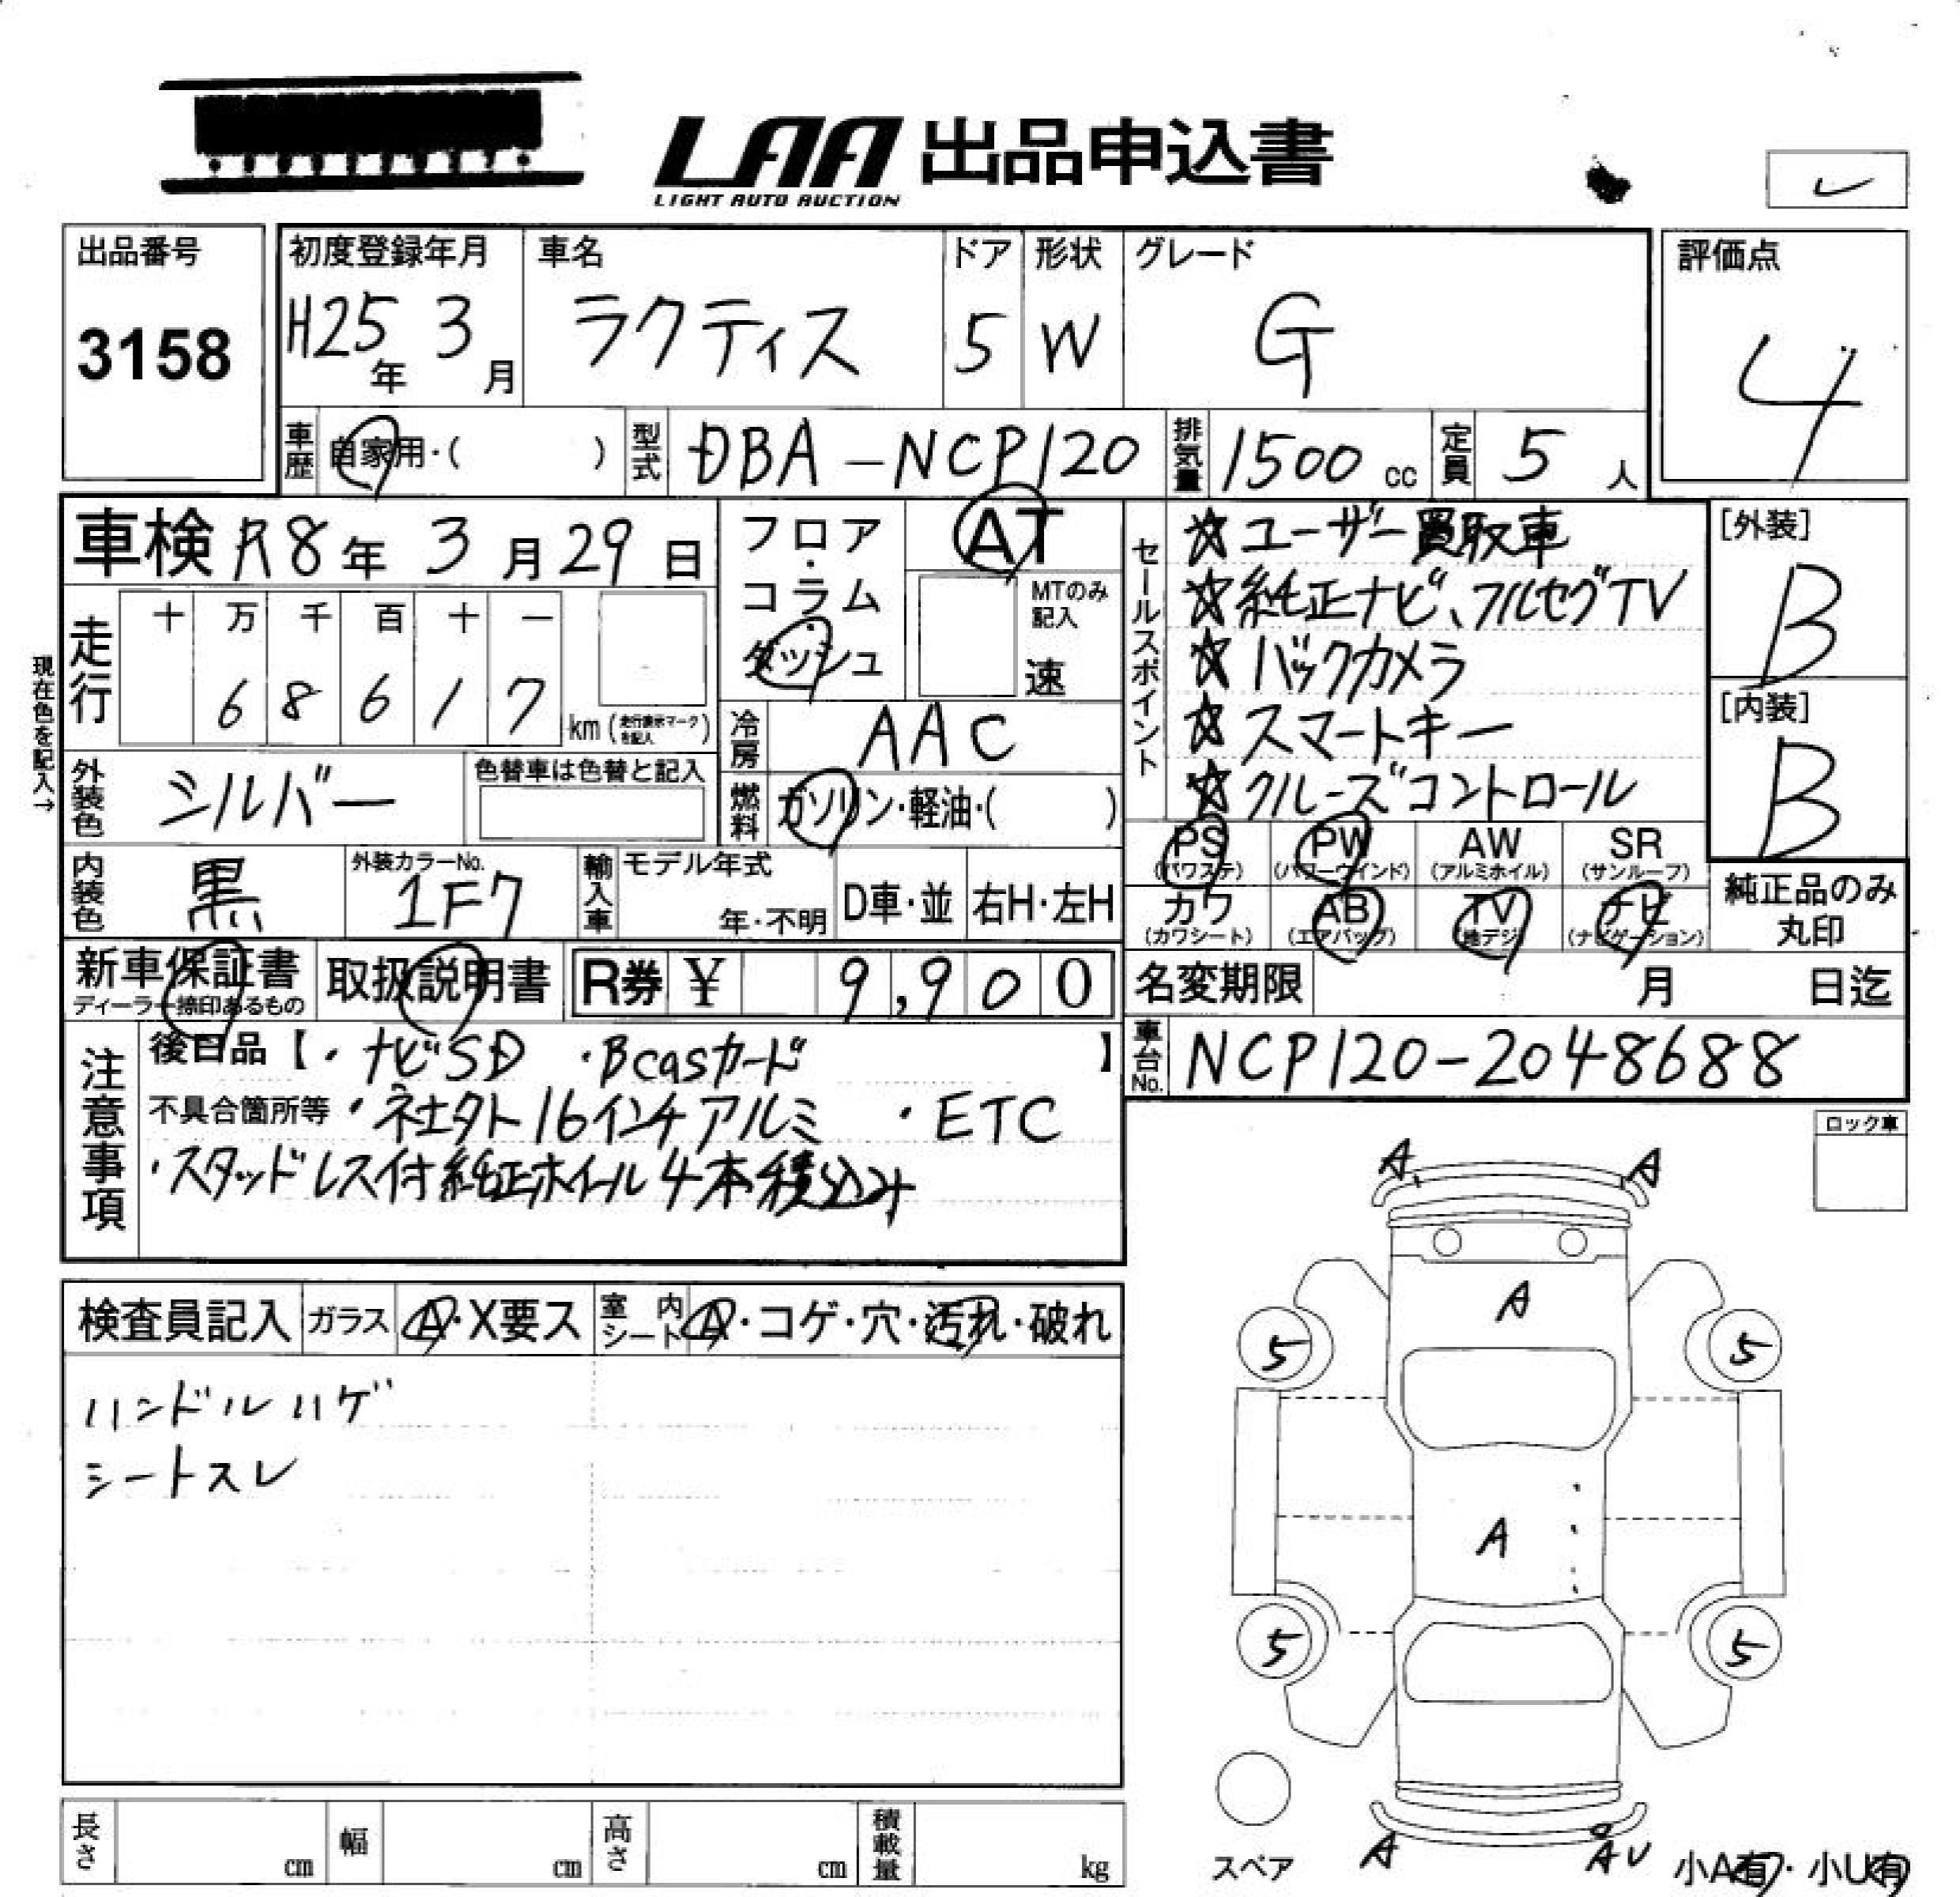 LAA 出品申込書
LIGHT AUTO AUCTION
出品番号
3158
初度登録年月
H25年 3月
車名
ラクティス
ドア
5
形状
W
グレード
G
評価点
4
車歴 自家用・( )
型式 DBA-NCP120
排気量 1500cc
定員 5人
車検 R8年 3月29日
現在色を記入→
走行 十 万 千 百 十 一
6 8 6 1 7 km (走行表示マークを記入)
フロア・コラム
ダッシュ
AT
MTのみ記入
速
冷房 AAC
燃料 ガソリン・軽油・( )
外装色 シルバー
色替車は色替と記入
内装色 黒
外装カラーNo.
1F7
輸入車 モデル年式
年・不明
D車・並
右H・左H
セールスポイント
☆ユーザー買取車
☆純正ナビ、フルセグTV
☆バックカメラ
☆スマートキー
☆クルーズコントロール
[外装]
B
[内装]
B
PS (パワステ) PW (パワーウインド) AW (アルミホイル) SR (サンルーフ)
カワ (カワシート) AB (エアバッグ) TV (地デジ) ナビ (ナビゲーション)
純正品のみ
丸印
新車保証書
ディーラー捺印あるもの
取扱説明書
R券 ¥ 9,900
名変期限 月 日迄
車台No. NCP120-2048688
注意事項
後日品【・ナビSD ・Bcasカード 】
不具合箇所等 ・ネエクト16インチアルミ ・ETC
・スタッドレス付純正ホイール4本積込み
ロック車
検査員記入 ガラス A・X要ス 室内シート A・コゲ・穴・汚れ・破れ
ハンドルハゲ
シートスレ
A A
A
5 5
A
5 5
スペア
A AU
小A有・小U有
長さ cm 幅 cm 高さ cm 積載量 kg